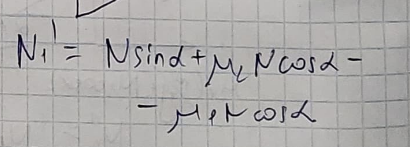 N₁' = N sinα + μ₂ N cosα -
- μ₁ N cosα